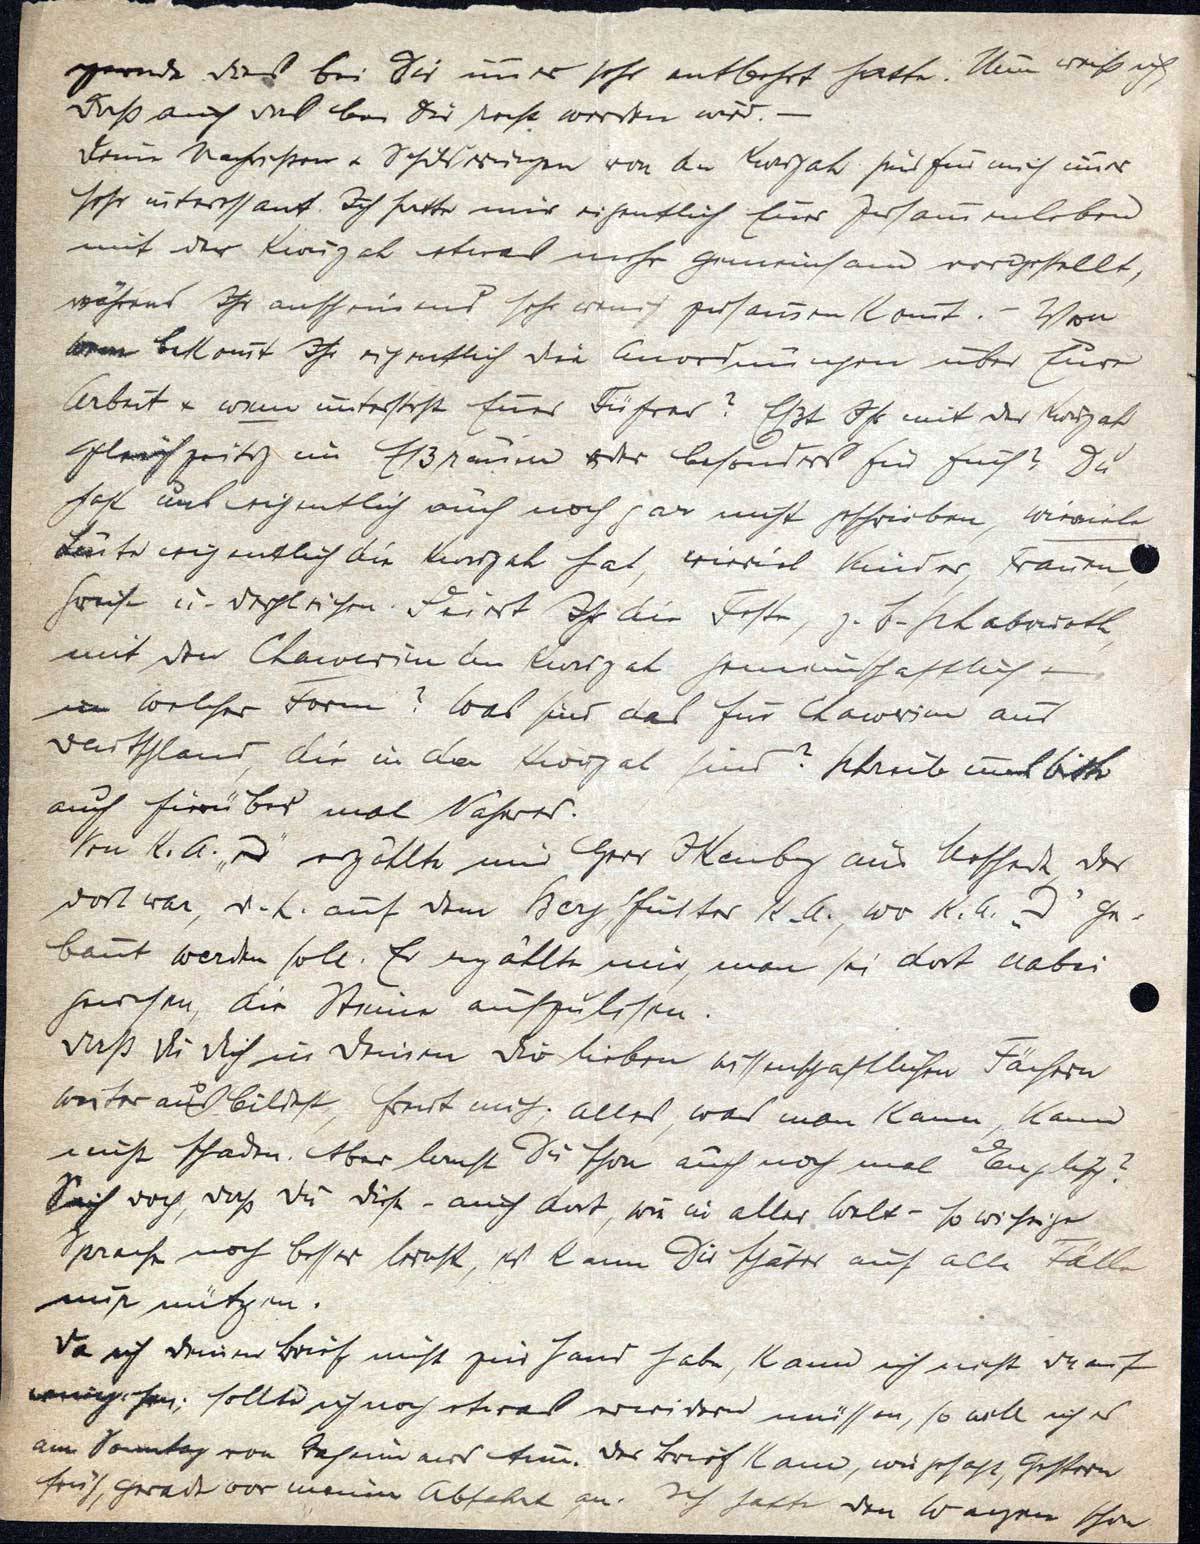 gerade dies bei Dir immer sehr entbehrt hatte. Nun weiß ich,
daß auch das bei Dir recht werden wird. —
Deine Nachrichten & Schilderungen von der Kwuzah sind für mich immer
sehr interessant. Ich hatte mir eigentlich Euer Zusammenleben
mit der Kwuzah etwas mehr gemeinsam vorgestellt,
während Ihr anscheinend sehr wenig zusammen kommt. – Von
wem bekommt Ihr eigentlich die Anordnungen über Eure
Arbeit & wem untersteht Euer Führer? Eßt Ihr mit der Kwuzah
gleichzeitig im Eßraum oder besonders für Euch? Du
hast uns eigentlich auch noch gar nicht geschrieben, wieviele
Leute eigentlich die Kwuzah hat, wieviel Kinder, Frauen,
Greise u. dergleichen. Feiert Ihr die Feste, z. B. Schabuoth,
mit den Chawerim der Kwuzah gemeinschaftlich –
in welcher Form? Was sind das für Chawerim aus
Deutschland, die in der Kwuzah sind? Schreibe uns bitte
auch hierüber mal Näheres.
Von K. A. „ erzählte mir Herr aus der
dort war, d. h. auf dem Berg hinter K. A., wo K. A. „ ge-
baut werden soll. Er erzählte mir, man sei dort dabei
gewesen, die Steine aufzulesen.
Daß Du Dich in Deinen Dir lieben wissenschaftlichen Fächern
weiter ausbildest, freut mich. Alles, was man kann, kann
nicht schaden. Aber lernst Du schon auch noch mal Englisch?
Sieh doch, daß Du diese – auch dort, wie in aller Welt – so wichtige
Sprache noch besser lernst, es kann Dir später auf alle Fälle
nur nützen.
Da ich Deinen Brief nicht zur Hand habe, kann ich nicht darauf
eingehen; sollte ich noch etwas erwidern müssen, so will ich es
am Sonntag von daheim aus tun. Der Brief kam, wie gesagt, gestern
früh, gerade vor meiner Abfahrt an. Ich hatte den Wagen schon